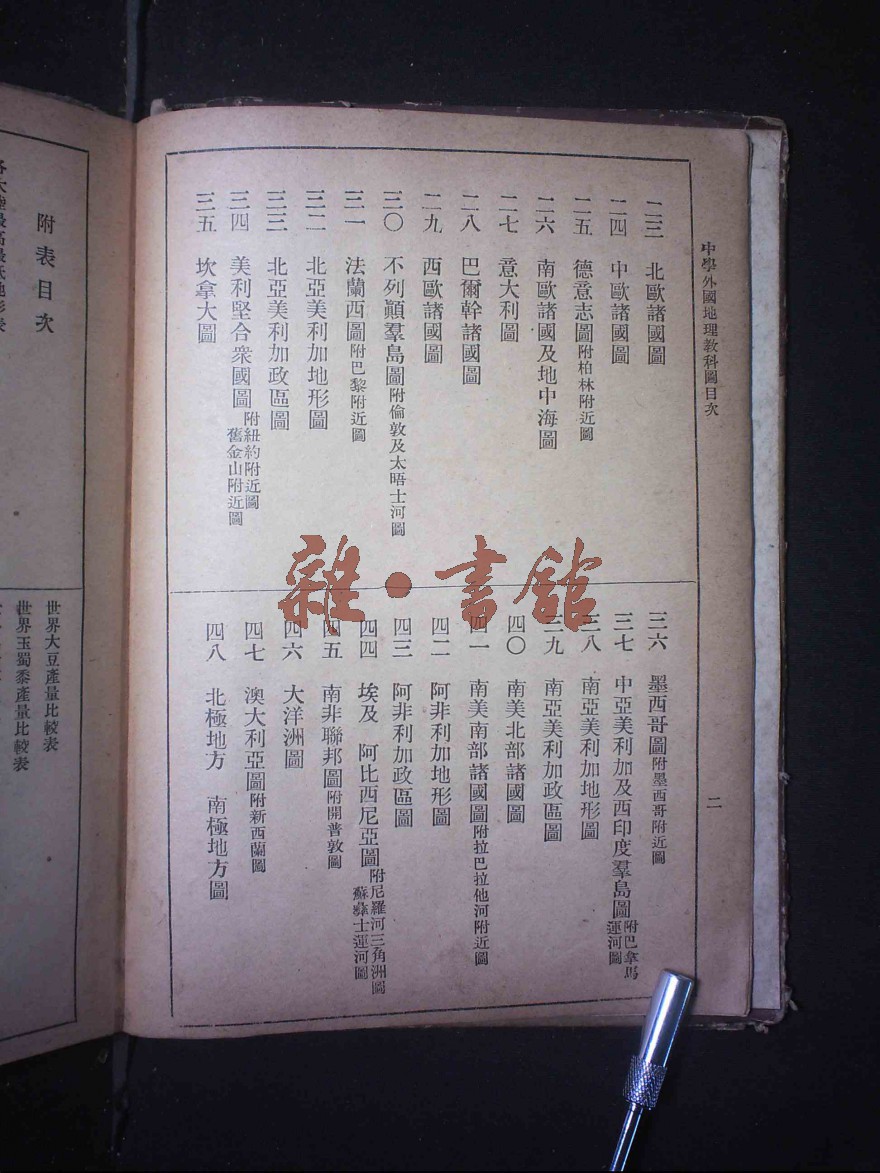 中學外國地理教科圖目次
二三 北歐諸國圖
二四 中歐諸國圖
二五 德意志圖附柏林附近圖
二六 南歐諸國及地中海圖
二七 意大利圖
二八 巴爾幹諸國圖
二九 西歐諸國圖
三〇 不列顚羣島圖附倫敦及太晤士河圖
三一 法蘭西圖附巴黎附近圖
三二 北亞美利加地形圖
三三 北亞美利加政區圖
三四 美利堅合衆國圖附紐約附近圖 舊金山附近圖
三五 坎拿大圖
三六 墨西哥圖附墨西哥附近圖
三七 中亞美利加及西印度羣島圖附巴拿馬運河圖
三八 南亞美利加地形圖
三九 南亞美利加政區圖
四〇 南美北部諸國圖
四一 南美南部諸國圖附拉巴拉他河附近圖
四二 阿非利加地形圖
四三 阿非利加政區圖
四四 埃及 阿比西尼亞圖附尼羅河三角洲圖 蘇彝士運河圖
四五 南非聯邦圖附開普敦圖
四六 大洋洲圖
四七 澳大利亞圖附新西蘭圖
四八 北極地方 南極地方圖
二
雜·書館
附表目次
各大陸最高最低地形表
世界大豆產量比較表
世界玉蜀黍產量比較表